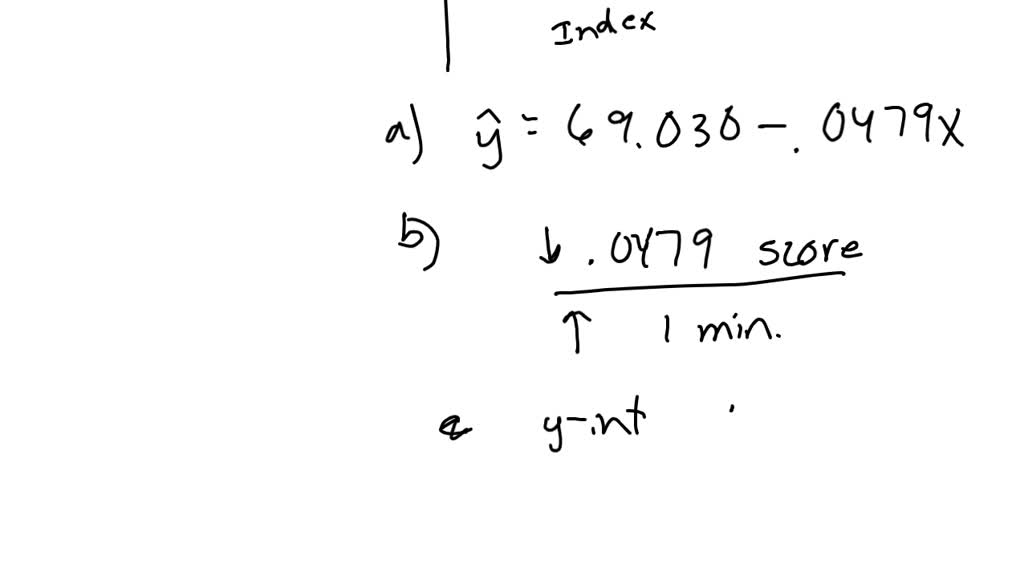 Index
a) ŷ = 69.030 - .0479x
b) ↓ .0479 score
↑ 1 min.
y-int